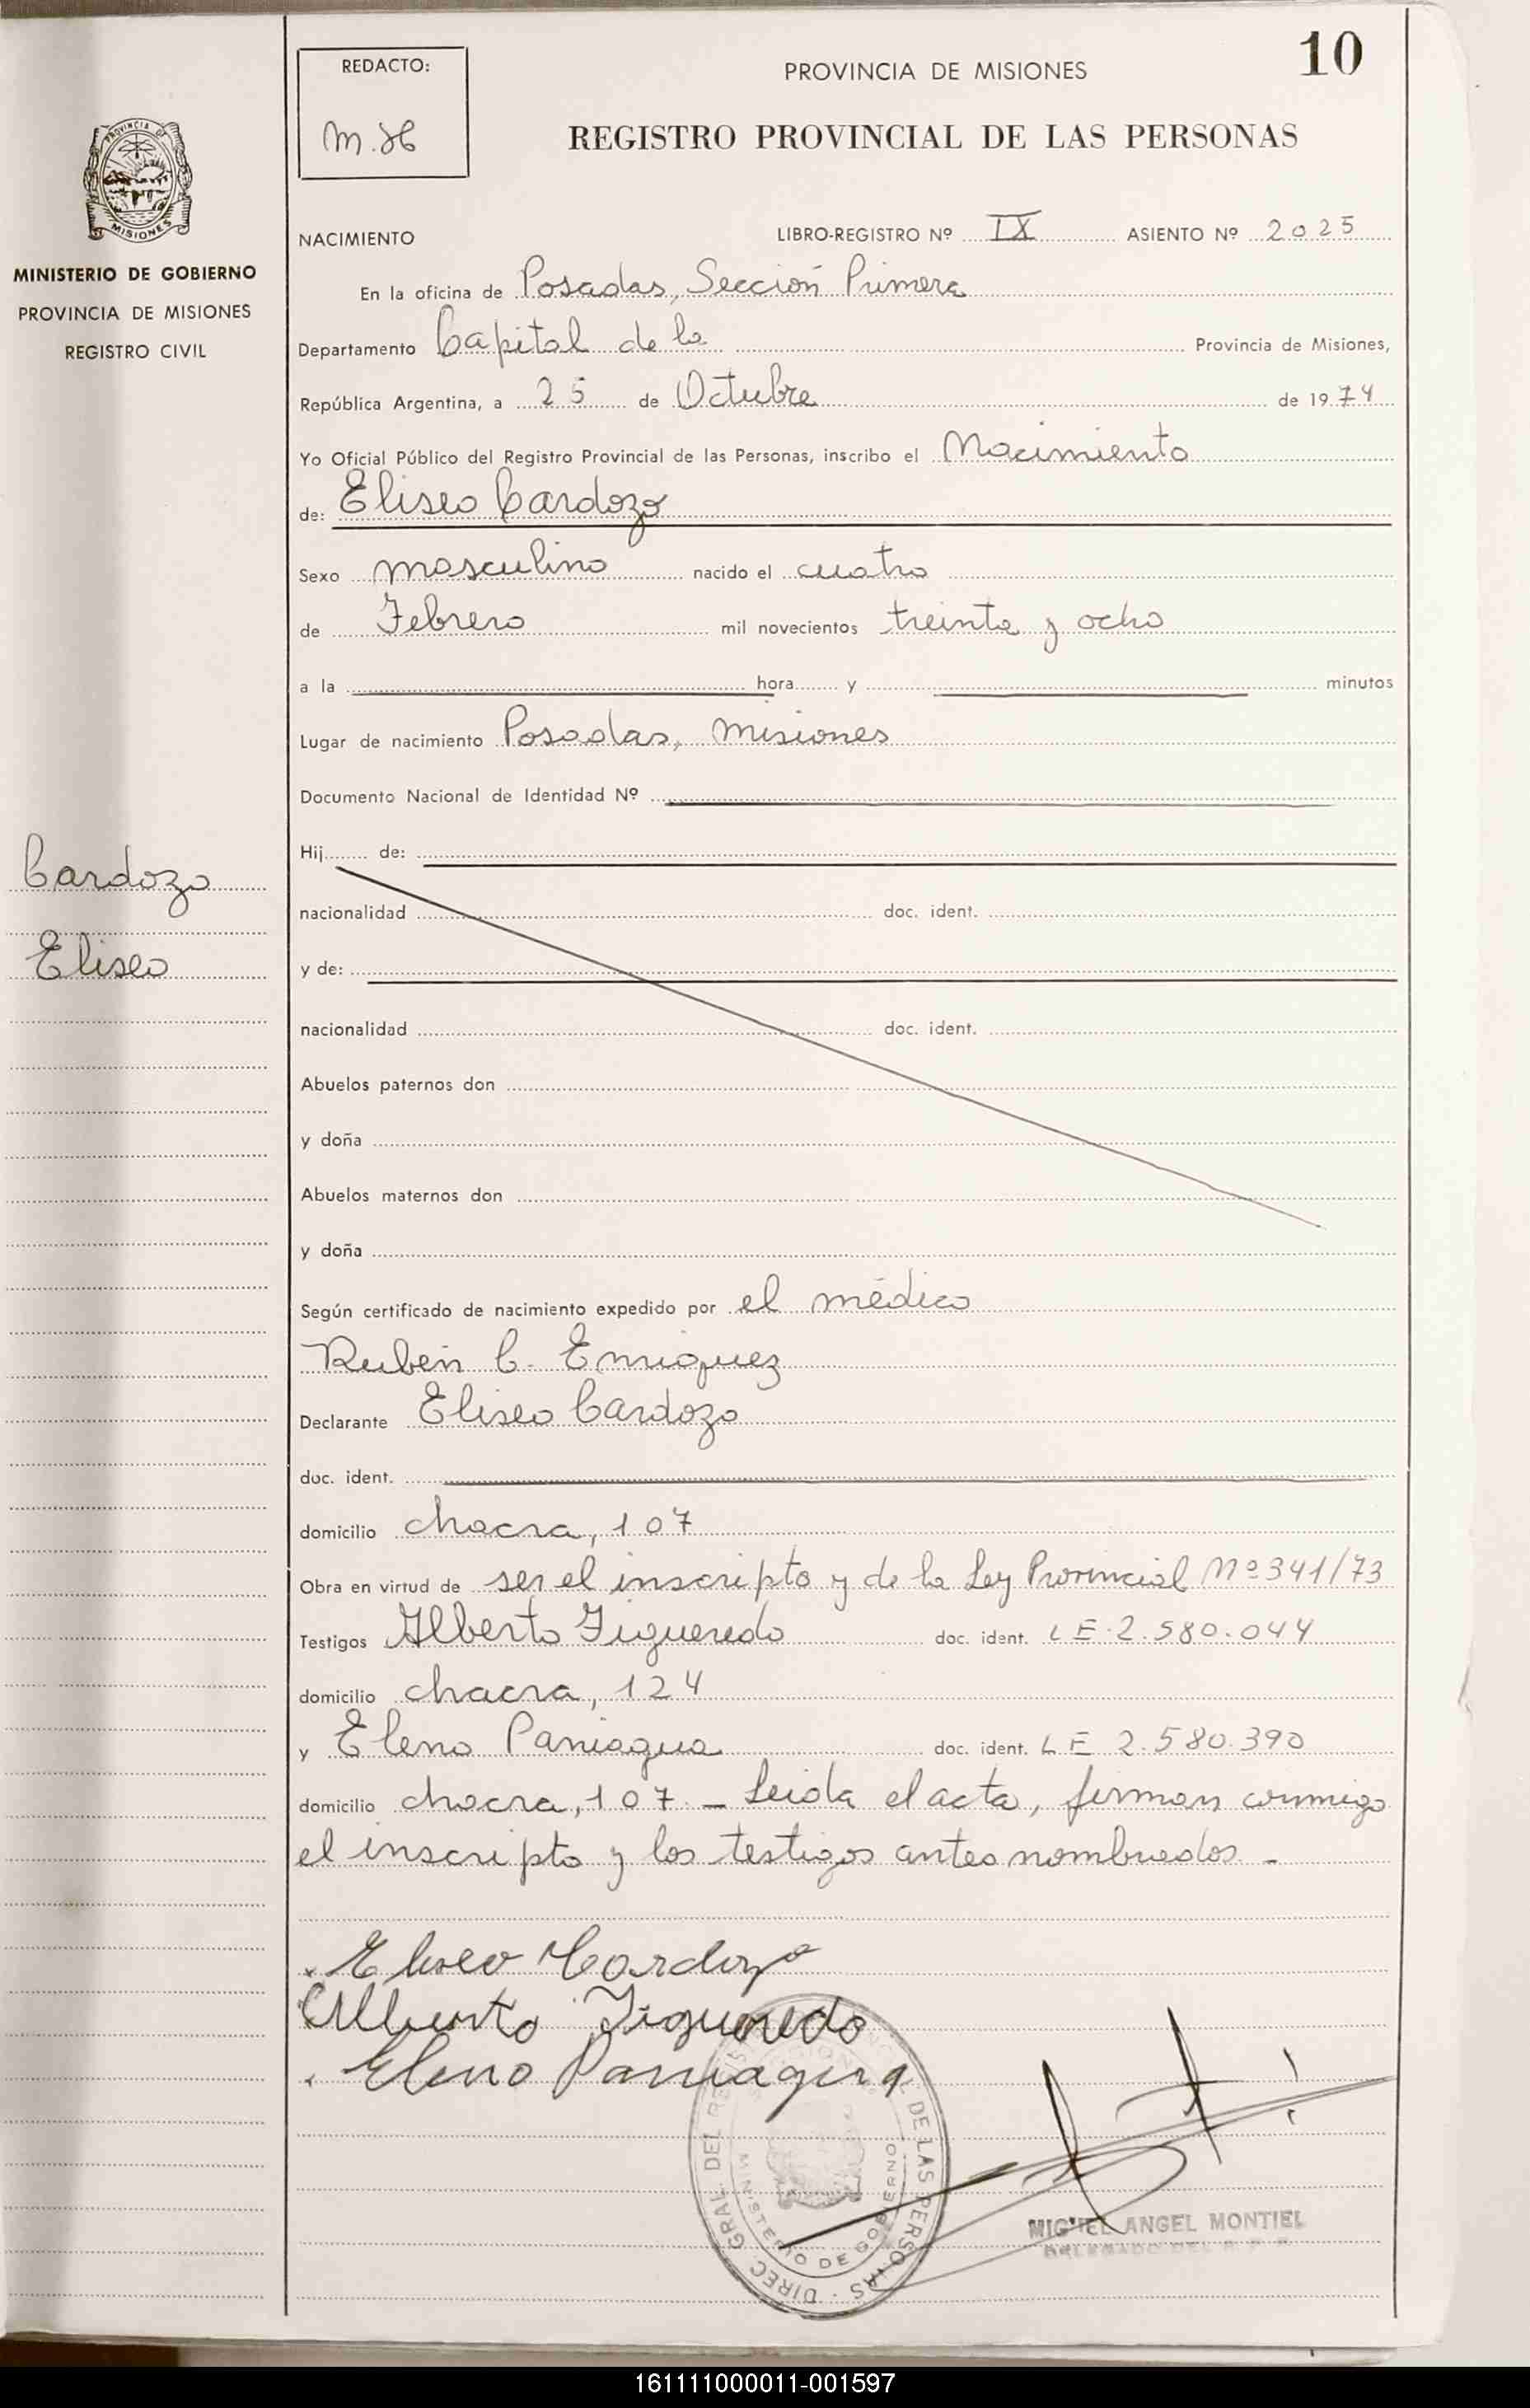 10
REDACTO:
M.H
PROVINCIA DE MISIONES
REGISTRO PROVINCIAL DE LAS PERSONAS
PROVINCIA DE
MISIONES
MINISTERIO DE GOBIERNO
PROVINCIA DE MISIONES
REGISTRO CIVIL
Cardozo
Eliseo
NACIMIENTO LIBRO-REGISTRO Nº IX ASIENTO Nº 2025
En la oficina de Posadas, Sección Primera
Departamento Capital de la Provincia de Misiones,
República Argentina, a 25 de Octubre de 1974
Yo Oficial Público del Registro Provincial de las Personas, inscribo el Nacimiento
de: Eliseo Cardozo
Sexo masculino nacido el cuatro
de Febrero mil novecientos treinta y ocho
a la hora y minutos
Lugar de nacimiento Posadas, Misiones
Documento Nacional de Identidad Nº
Hij de:
nacionalidad doc. ident.
y de:
nacionalidad doc. ident.
Abuelos paternos don
y doña
Abuelos maternos don
y doña
Según certificado de nacimiento expedido por el médico
Rubén C. Enriquez
Declarante Eliseo Cardozo
doc. ident.
domicilio chacra, 107
Obra en virtud de ser el inscripto y de la Ley Provincial Nº 341/73
Testigos Alberto Figueredo doc. ident. LE. 2.580.044
domicilio chacra, 124
y Eleno Paniagua doc. ident. LE 2.580.390
domicilio chacra, 107. - Leida el acta, firman conmigo
el inscripto y los testigos antes nombrados. -
Eliseo Cardozo
Alberto Figueredo
Eleno Paniagua
DIREC. GRAL. DEL DE LAS PERSONAS
MINISTERIO DE GOBIERNO
MIGUEL ANGEL MONTIEL
DELEGADO DEL R. P. P.
161111000011-001597